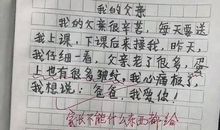 我的父亲
我的父亲很辛苦,每天要送
我上课,下课后来接我,昨天,
我仔细一看,父亲老了很多,脸
上也有很多皱纹,我心痛极了,
我想说:爸爸,我爱你!
家长不能什么东西都给